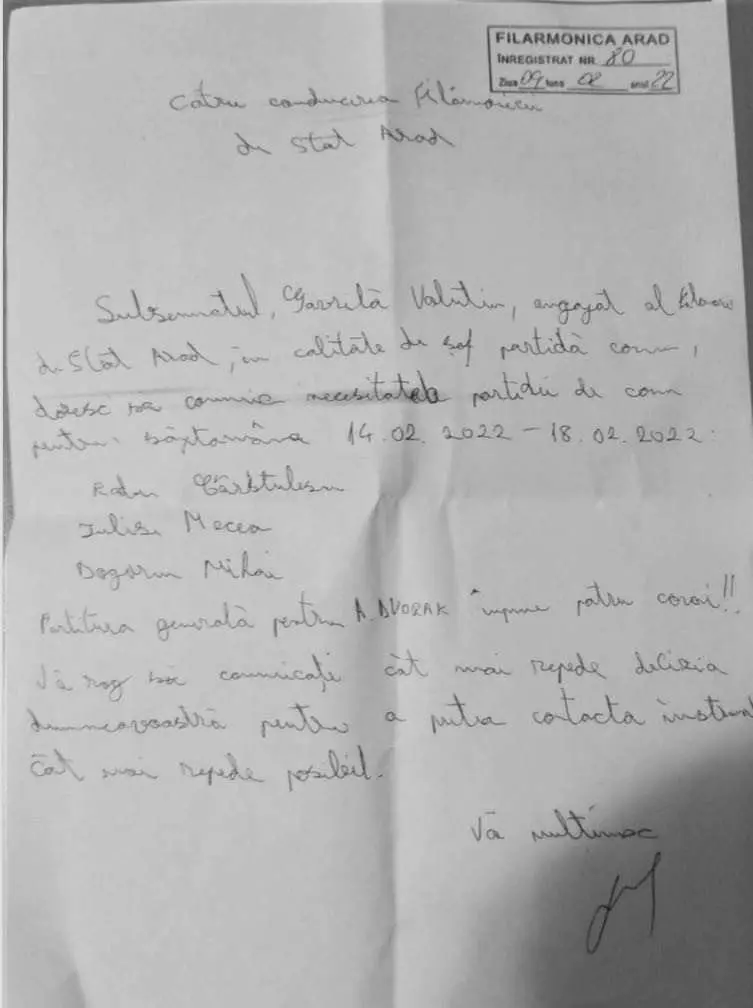 FILARMONICA ARAD
ÎNREGISTRAT NR. 80
Ziua 09 luna 02 anul 22
Către conducerea Filarmonicii
de Stat Arad
Subsemnatul, Gavrilă Valentin, angajat al
de Stat Arad, în calitate de șef partidă corn,
doresc să comunic necesitatea partidei de corn
pentru săptămâna 14.02.2022 – 18.02.2022:
Radu
Iulius Mecea
Mihai
Partitura generală pentru A. DVORAK impune patru corni!!
Vă rog să comunicați cât mai repede decizia
dumneavoastră pentru a putea contacta
cât mai repede posibil.
Vă mulțumesc